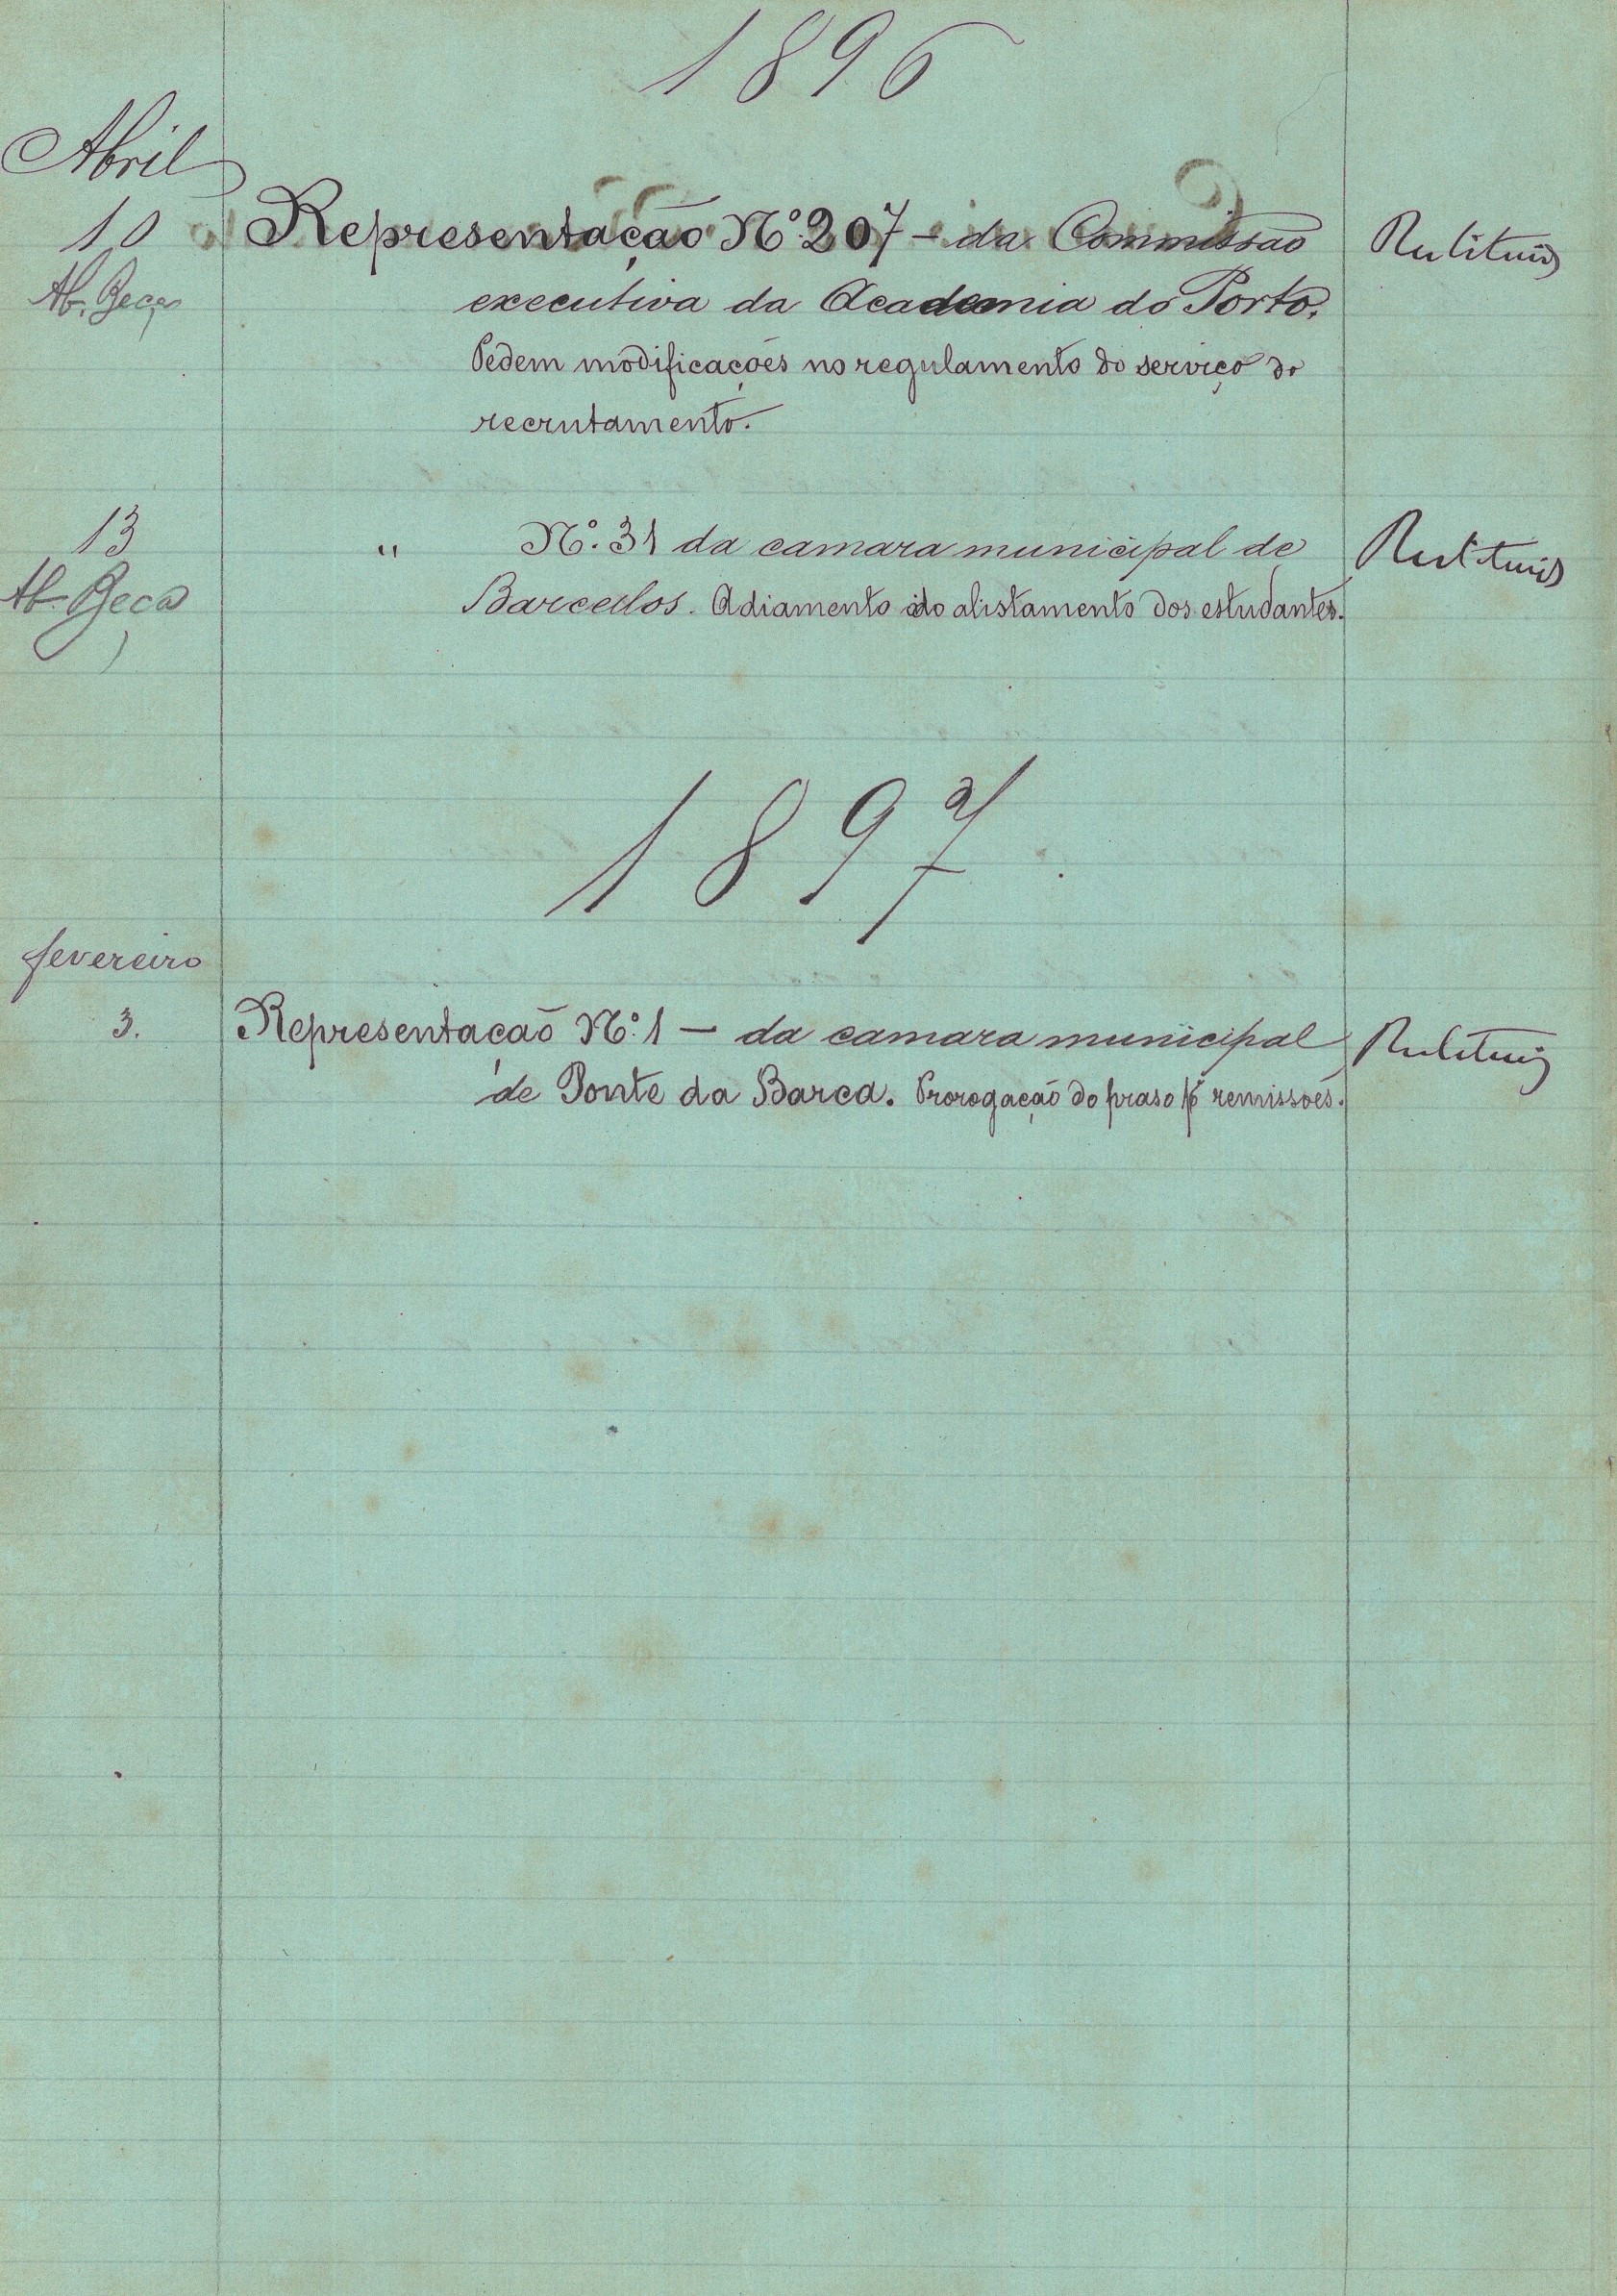 1896
Abril
10 Representação Nº 207 - da Commissão Restituiu
Ab. Beça executiva da Academia do Porto.
Pedem modificações no regulamento do serviço do
recrutamento.
13 " Nº. 31 da camara municipal de Restituiu
Ab. Beça Barcellos. Adiamento do alistamento dos estudantes.
1897.
fevereiro
3. Representação Nº. 1 - da camara municipal Restituiu
de Ponte da Barca. Prorogação do praso pª remissões.